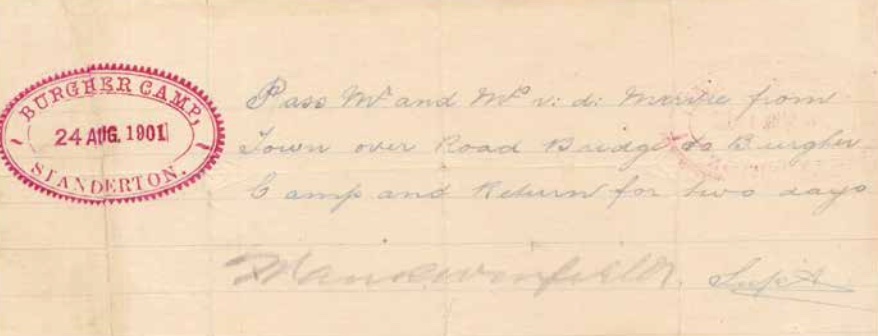 BURGHER CAMP,
24 AUG. 1901
STANDERTON.
Pass Mr and Mrs v: d: from
Town over Road Bridge to Burgher
Camp and Return for two days
Supt